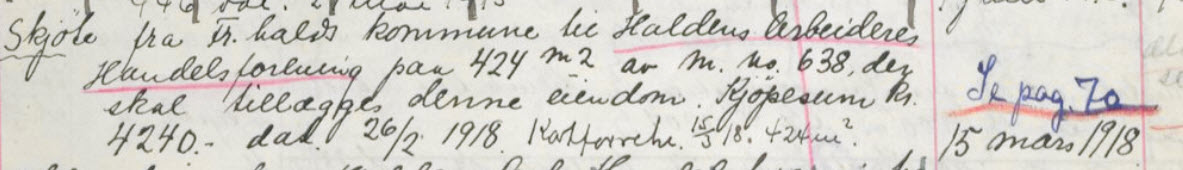 Skjöte fra Fr.halds kommune til Haldens Arbeideres
Handelsforening paa 424 m2 av M. no. 638, der
skal tillægges denne eiendom. Kjöpesum kr.
4240.- dat. 26/2 1918. Kartforretn. 15/3 18. 424m².
Se pag. 70
15 mars 1918